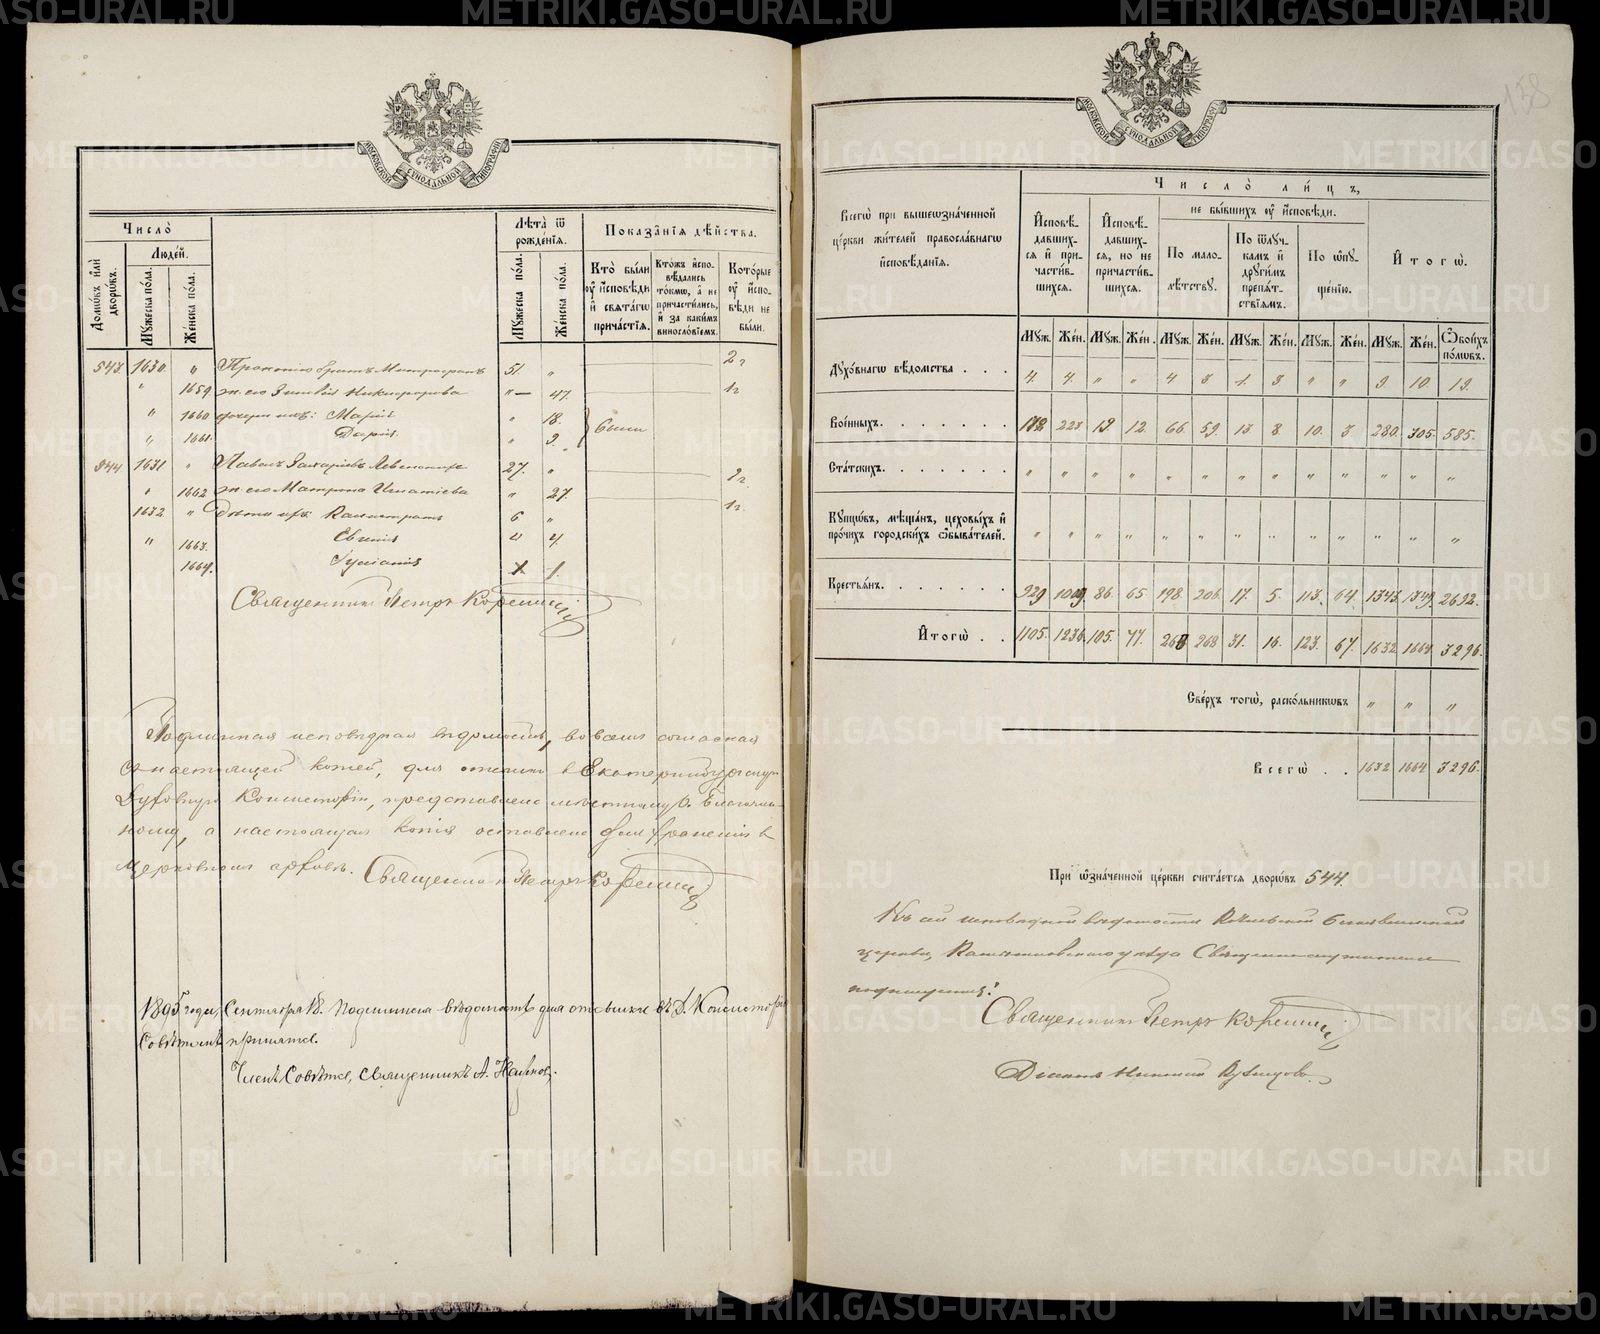 МОСКОВСКОЙ СУНОДАЛЬНОЙ ТИПОГРАФІИ
Число̀
Людей.
Домѡвъ и҆лѝ дворѡвъ.
Мꙋжеска по́ла.
Же́нска по́ла.
Лѣта̀ ѿ рожде́нїѧ.
Мꙋжеска по́ла.
Же́нска по́ла.
Показа̑нїѧ дѣ́йства.
Кто̀ бы́ли оу҆ и҆сповѣди и҆ свѧта́гѡ прича́стїѧ.
Кто́жъ и҆спо-вѣдались то́кмѡ, а҆ не причасти́лись, и҆ за каки́мъ винословїемъ.
Кото́рые оу҆ и҆спо-вѣди не бы́ли.
543. 1630. „ Прокопію братъ Митрофанъ 51. „ 2 г
„ 1659. ж. его Зиновія Никифорова „ 47. 1 г
„ 1660 дочери ихъ: Марія „ 18.
„ 1661. Дарія. „ 9. были
544 1631 „ Павелъ Захаріевъ 27. „ 2 г.
„ 1662 ж. его Матрона Игнатіева „ 27. 1 г.
1632 „ дѣти ихъ Каллистратъ 6 „
„ 1663. Евгенія „ 4.
1664. Іуліанія 1.
Священникъ Петръ Корелинъ
Подлинная исповѣдная вѣдомость, во всемъ согласная
съ настоящей копіей, для отсылки въ Екатеринбургскую
Духовную Консисторію, представлена мѣстному О. Благочин-
ному, а настоящая копія оставлена для храненія въ
церковномъ архивѣ. Священникъ Петръ Корелинъ
1895 года, Сентября 18. Подлинная вѣдомость для отсылки въ Д. Консисторію
Совѣтомъ принята.
Членъ Совѣта, Священникъ А.
158
МОСКОВСКОЙ СУНОДАЛЬНОЙ ТИПОГРАФІИ
Всегѡ̀ при вышеѡзна́ченной це́ркви жи́телей правосла́внагѡ и҆сповѣданїѧ.
Число̀ ли́цъ,
И҆сповѣ-давших-сѧ и҆ при-части́в-шихсѧ.
И҆сповѣ-давших-сѧ, но не причасти́в-шихсѧ.
не бы́вшихъ оу҆ и҆сповѣди.
По мало-лѣтствꙋ.
По ѿлꙋч-камъ и҆ дрꙋги́мъ препѧ́т-ствїѧмъ.
По ѡ҆пꙋ-ще́нїю.
И҆того̀.
Мꙋж. Же́н. Мꙋж. Же́н. Мꙋж. Же́н. Мꙋж. Же́н. Мꙋж. Же́н. Мꙋж. Же́н. Ѻ҆бои́хъ по́лѡвъ.
Дꙋхо́внагѡ вѣдомства . . . 4. 4. „ „ 4 3 1. 3 „ „ 9 10. 19.
Вое́нныхъ. . . . . . . . 172 223 19 12. 66. 59. 13 8. 10. 3. 280. 305. 585.
Ста́тскихъ. . . . . . . „ „ „ „ „ „ „ „ „ „ „ „ „
Кꙋпцѡ́въ, мѣща́нъ, цеховы́хъ и҆ про́чихъ городски́хъ ѡ҆быва́телей. „ „ „ „ „ „ „ „ „ „ „ „ „
Крестьѧ́нъ. . . . . . . 929 1009. 86. 65. 198. 206. 17. 5. 113. 64. 1343. 1349. 2692.
И҆того̀ . . 1105. 1236. 105. 77. 268 268 31. 16. 123. 67. 1632 1664. 3296.
Све́рхъ тогѡ̀, раско́льникѡвъ „ „ „
Всегѡ̀ . . 1632 1664 3296.
При ѡ҆зна́ченной це́ркви счита́етсѧ дворѡ́въ 544.
Къ сей исповѣдной вѣдомости Богоявленской
церкви, Камышловскаго уѣзда Священноцерковнослужители
подписуемся:
Священникъ Петръ Корелинъ
Діаконъ Николай Кузнецовъ.
METRIKI.GASO-URAL.RU